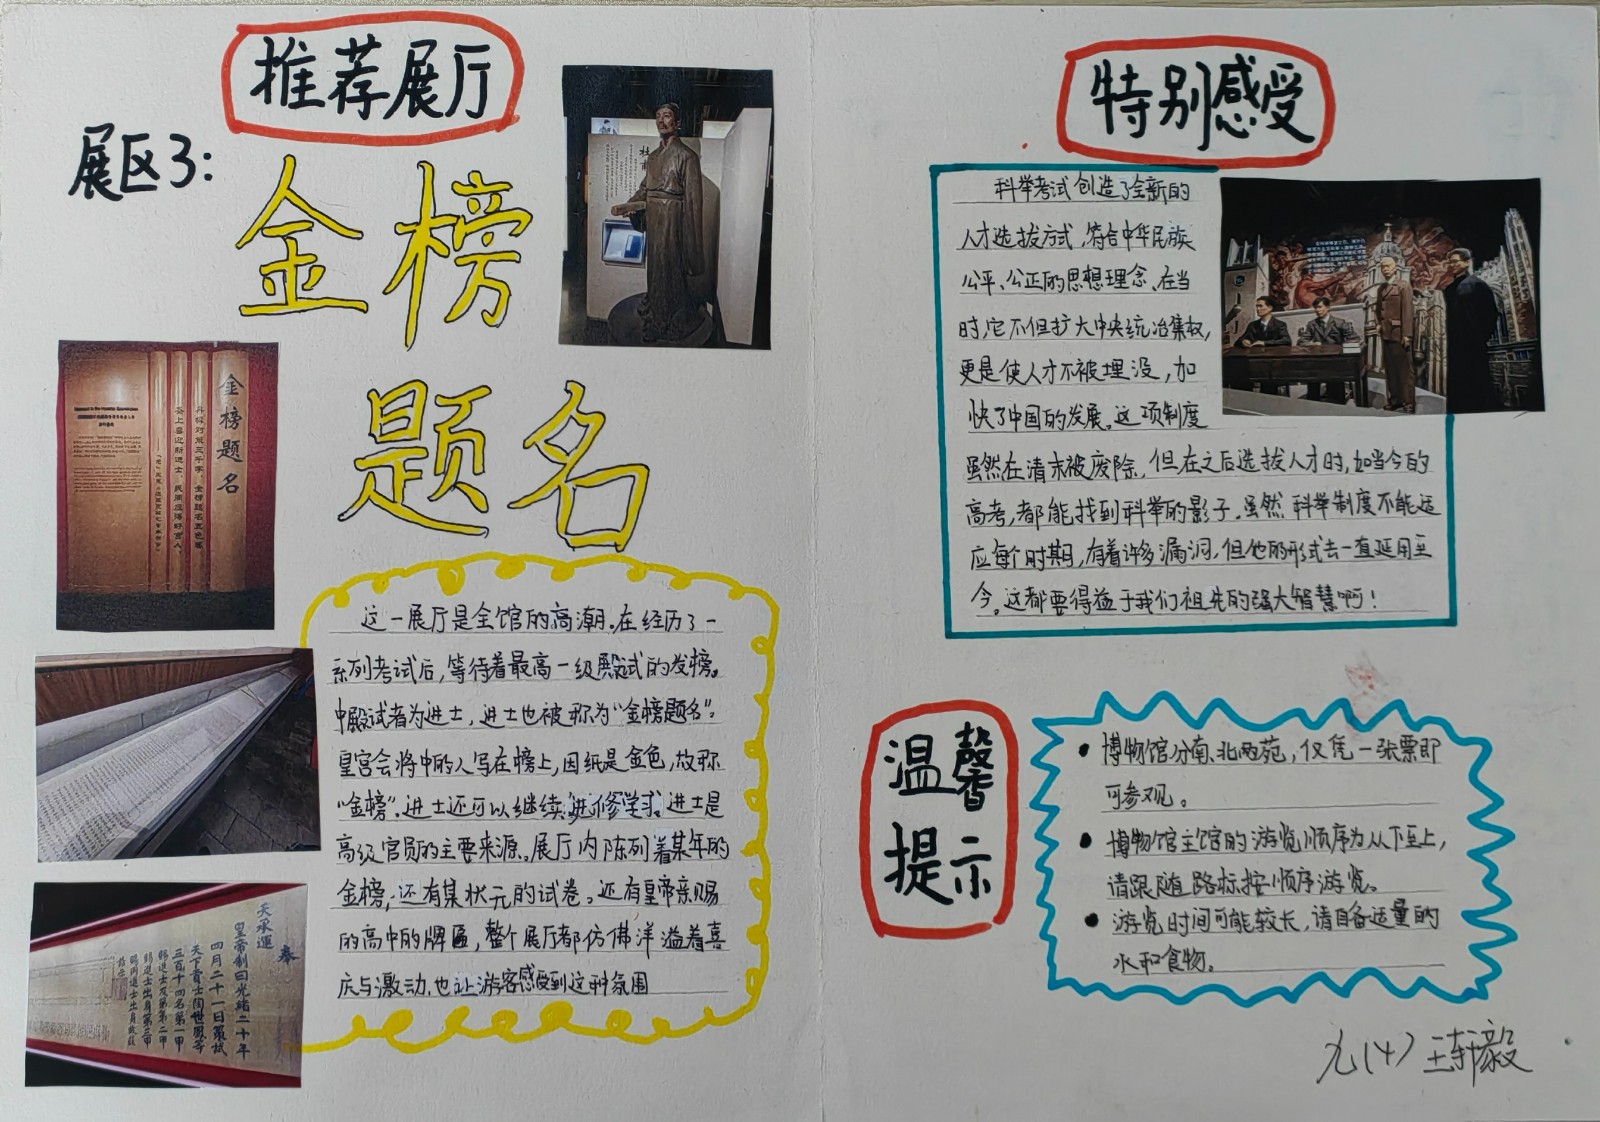 推荐展厅
展区3:
金榜
题名
金榜题名
这一展厅是全馆的高潮。在经历了一
系列考试后,等待着最高一级殿试的发榜。
中殿试者为进士,进士也被称为“金榜题名”。
皇宫会将中的人写在榜上,因纸是金色,故称
“金榜”。进士还可以继续进修学习。进士是
高级官员的主要来源。展厅内陈列着某年的
金榜,还有某状元的试卷。还有皇帝亲赐
的高中的牌匾,整个展厅都仿佛洋溢着喜
庆与激动,也让游客感受到这种氛围
奉
天承運
皇帝制曰光緒二十年
四月二十一日策試
天下貢士陶世鳳等
三百十四名第一甲
賜進士及第第二甲
賜進士出身第三甲
賜同進士出身故茲
誥示
特别感受
科举考试创造了全新的
人才选拔方式,符合中华民族
公平、公正的思想理念。在当
时,它不但扩大中央统治集权,
更是使人才不被埋没,加
快了中国的发展。这项制度
虽然在清末被废除,但在之后选拔人才时,如当今的
高考,都能找到科举的影子。虽然科举制度不能适
应每个时期,有着许多漏洞,但他的形式去一直延用至
今。这都要得益于我们祖先的强大智慧啊!
温馨
提示
• 博物馆分南、北两苑,仅凭一张票即
可参观。
• 博物馆主馆的游览顺序为从下至上,
请跟随路标按顺序游览。
• 游览时间可能较长,请自备适量的
水和食物。
九(4) 王轩毅